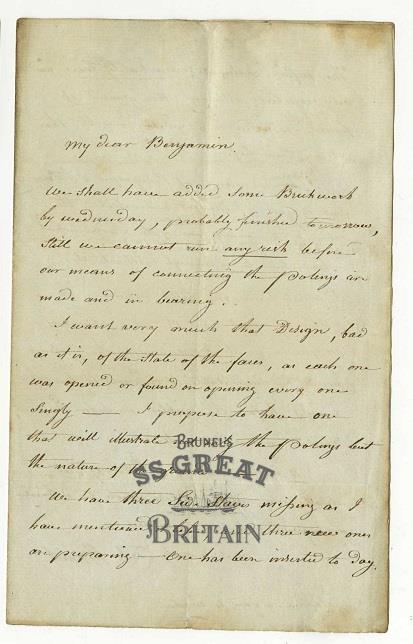 My dear Benjamin.
We shall have added some Brickwork
by wednesday, probably finished tomorrow,
Still we cannot run any risk before
our means of connecting the polings are
made and in bearing.
I want very much that Design, bad
as it is, of the State of the faces, as each one
was opened or found on opening every one
Singly — I propose to have one
that will illustrate the polings but
the nature of the
We have three missing as I
have mentioned three new ones
are preparing — One has been inserted to day.
BRUNEL'S
SS GREAT
BRITAIN